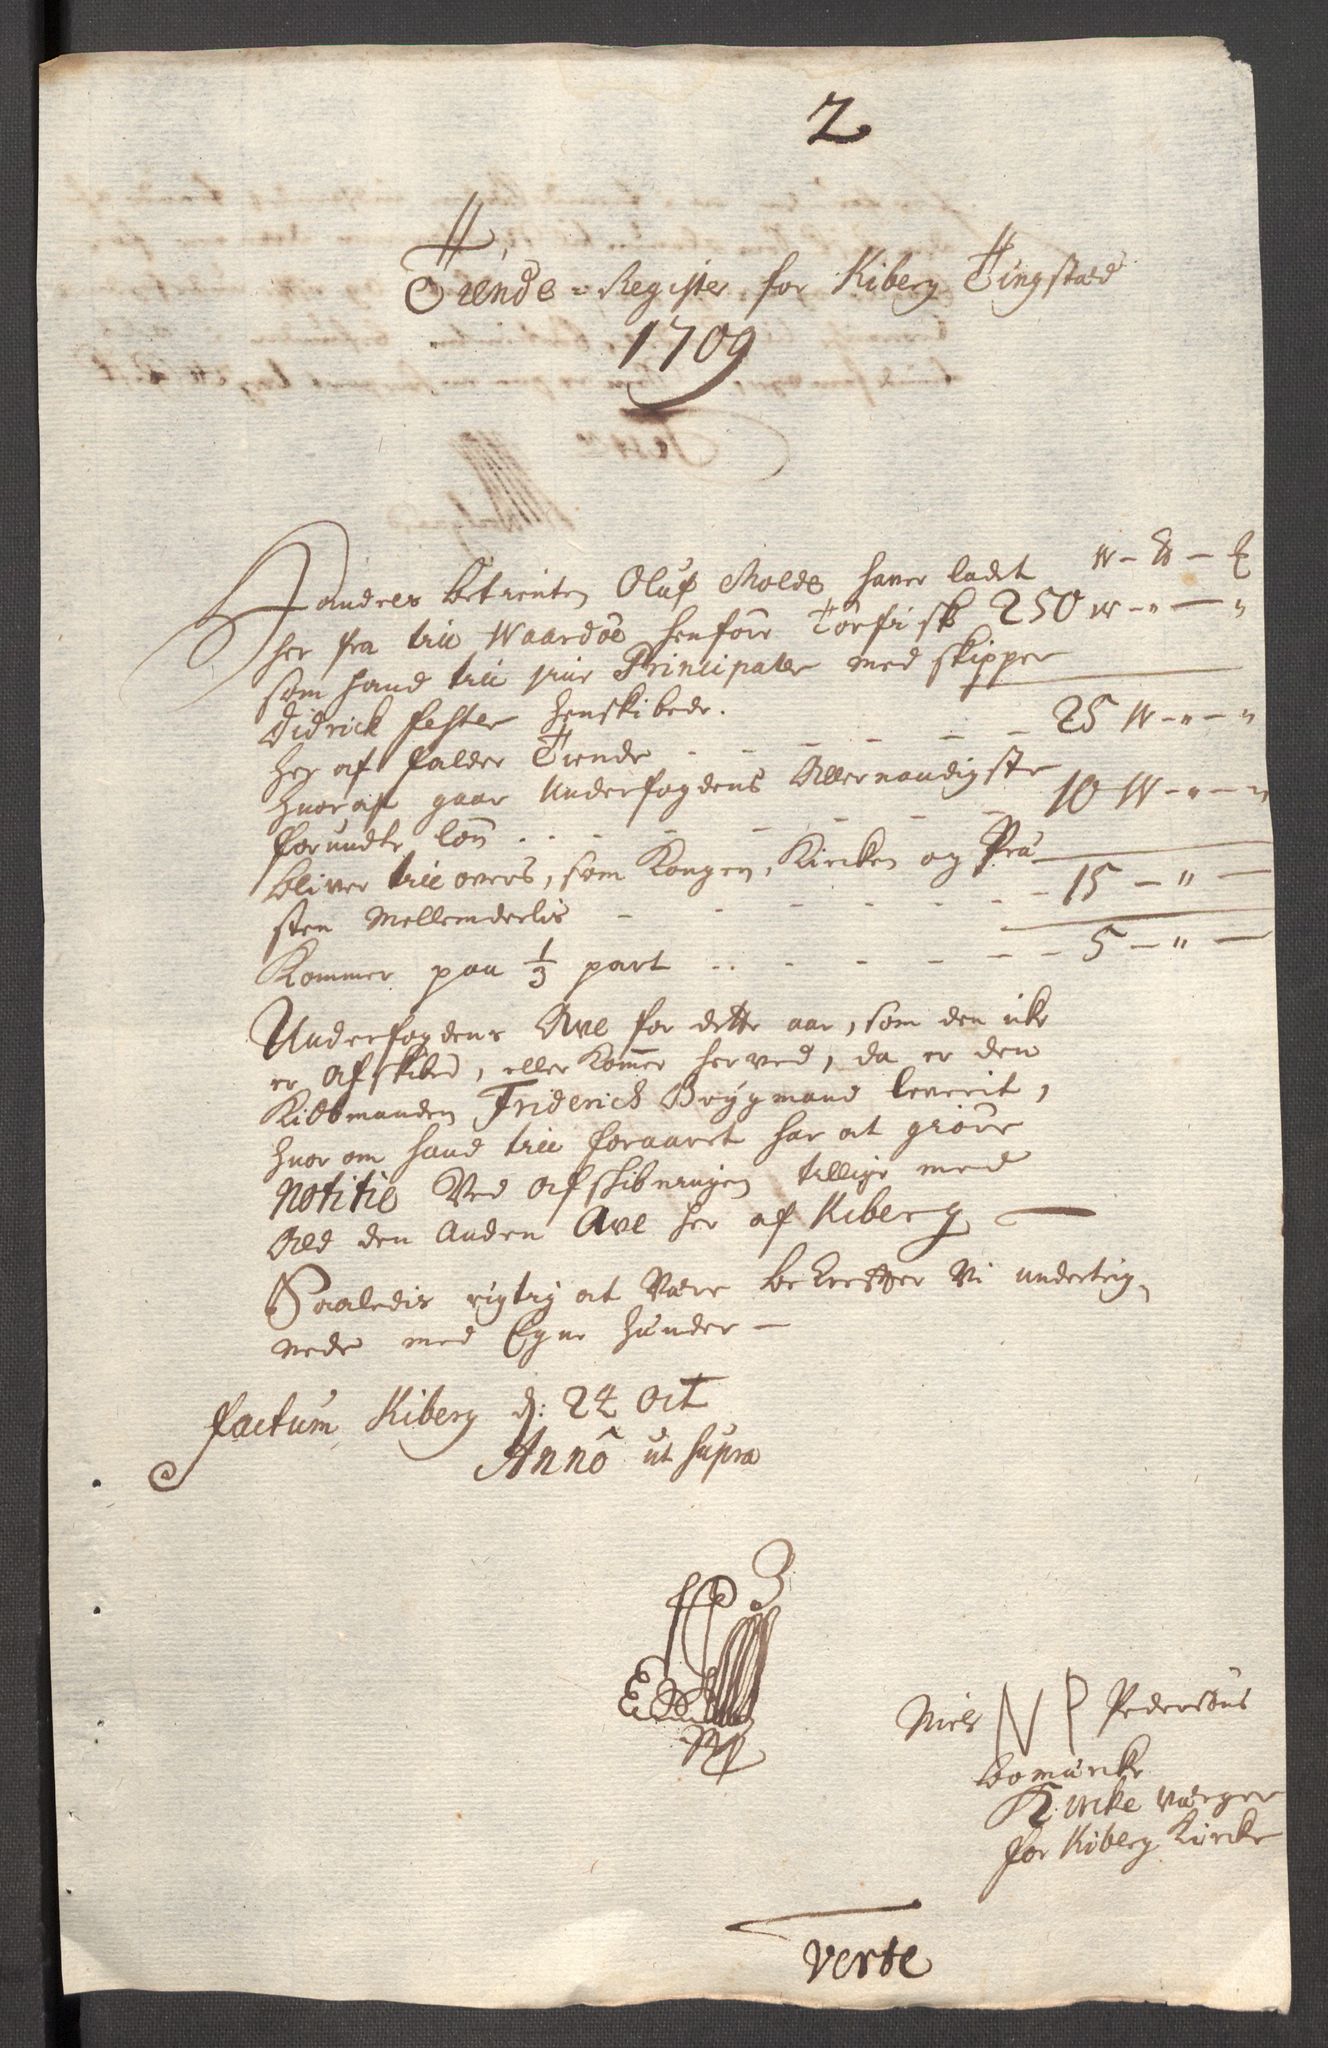 2
Tiende-Register for Kiberg Tingstæd
1709
W - ℔ - 
Handels betienten Oluf Molde haver ladet
her fra til Waardøe henføre Törfisk 250 W - " - "
som hand til sine Principaler med skipper
Didrick Fester henskibede.
Her af falder Tiende - - - - - - 25 W - " - "
Huoraf gaar Underfogdens Allernaadigste
forundte lön - - - - - - 10 W - " - "
bliver til overs, som Kongen, Kircken og Præ
sten Mellemdeelis - - - - - - 15 - " -
Kommer paa 1/3 part - - - - - - 5 - " -
Underfogdens Ave for dette aar, som den icke
er afskibed, eller kommer herved, da er den
Kiöbmanden Friderich Brügmand leverit,
huor om hand til foraaret har at giöre
Notitie Ved afskibningen tillige med
Ald den Anden Ave her af Kiberg
Saaledis rigtig at Være bekreffter Vi underteig,
nede med Egne hænder -
factum Kiberg d: 24 Oct
Anno ut supra
Niels N P Pedersöns
bomærcke
Kircke værger
for Kiberg Kircke
verte